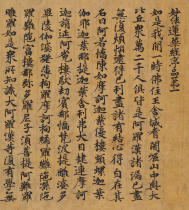 妙法蓮華經序品第一
如是我聞一時佛住王舍城耆闍崛山中與大
比丘眾萬二千人俱皆是阿羅漢諸漏已盡
無復煩惱逮得己利盡諸有結心得自在其
名曰阿若憍陳如摩訶迦葉優樓頻螺迦葉
伽耶迦葉那提迦葉舍利弗大目揵連摩訶
迦旃延阿㝹樓馱劫賓那憍梵波提離婆多
畢陵伽婆蹉薄拘羅摩訶拘絺羅難陀孫陀
羅難陀富樓那彌多羅尼子須菩提阿難羅
睺羅如是眾所知識大阿羅漢等復有學無